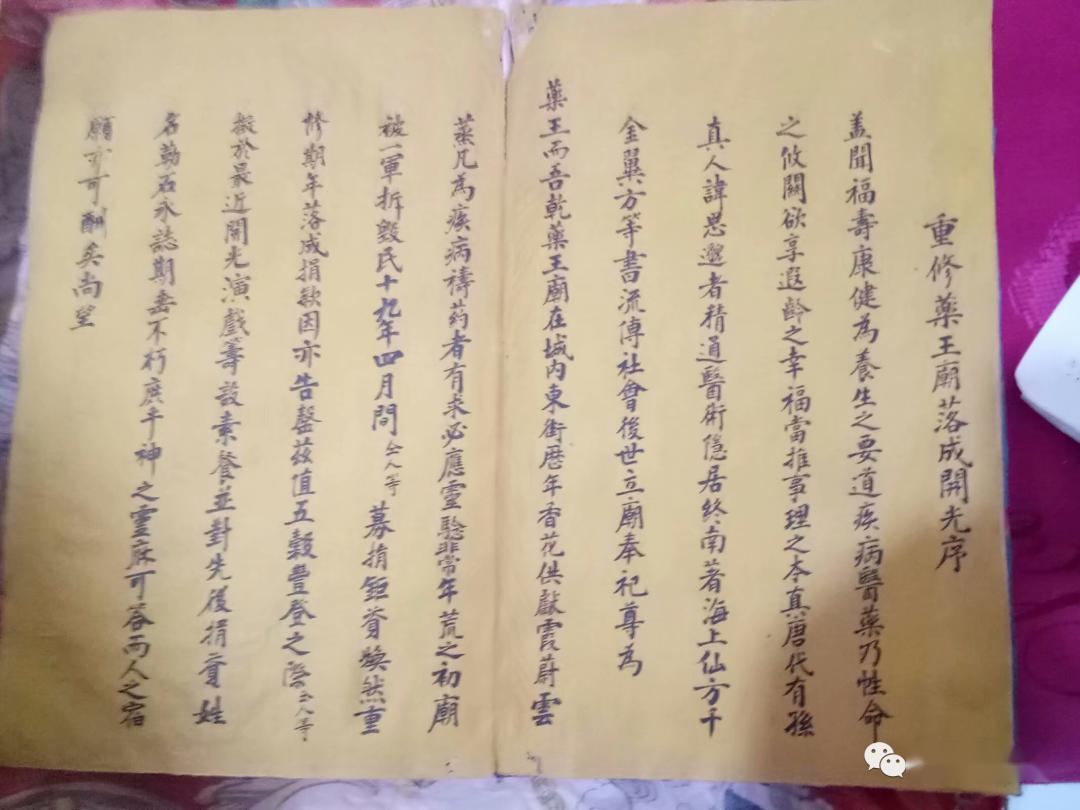 重修藥王廟落成開光序
盖聞福壽康健為養生之要道疾病醫藥乃性命
之攸關欲享遐齡之幸福當推事理之本真唐代有孫
真人諱思邈者精通醫術隱居終南著海上仙方千
金翼方等書流傳社會後世立廟奉祀尊為
藥王而吾乾藥王廟在城內東街歷年香花供獻霞蔚雲
蒸凡為疾病禱药者有求必應靈驗非常年荒之初廟
被一軍折毀民十九年四月間仝人等募捐鉅資煥然重
修期年落成捐欵因亦告罄茲值五穀豐登之際仝人等
擬於最近開光演戲籌設素餐並對先後捐資姓
名勒石永誌期垂不朽庶乎神之靈庥可答而人之宿
願亦可酬矣尚望